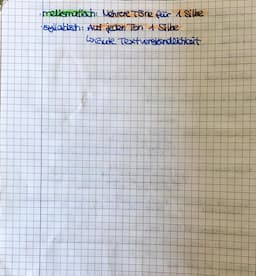 · melismatisch: Mehrere Töne für 1 Silbe
· syllabisch: Auf jeden Ton 1 Silbe
↳ Gute Textverständlichkeit